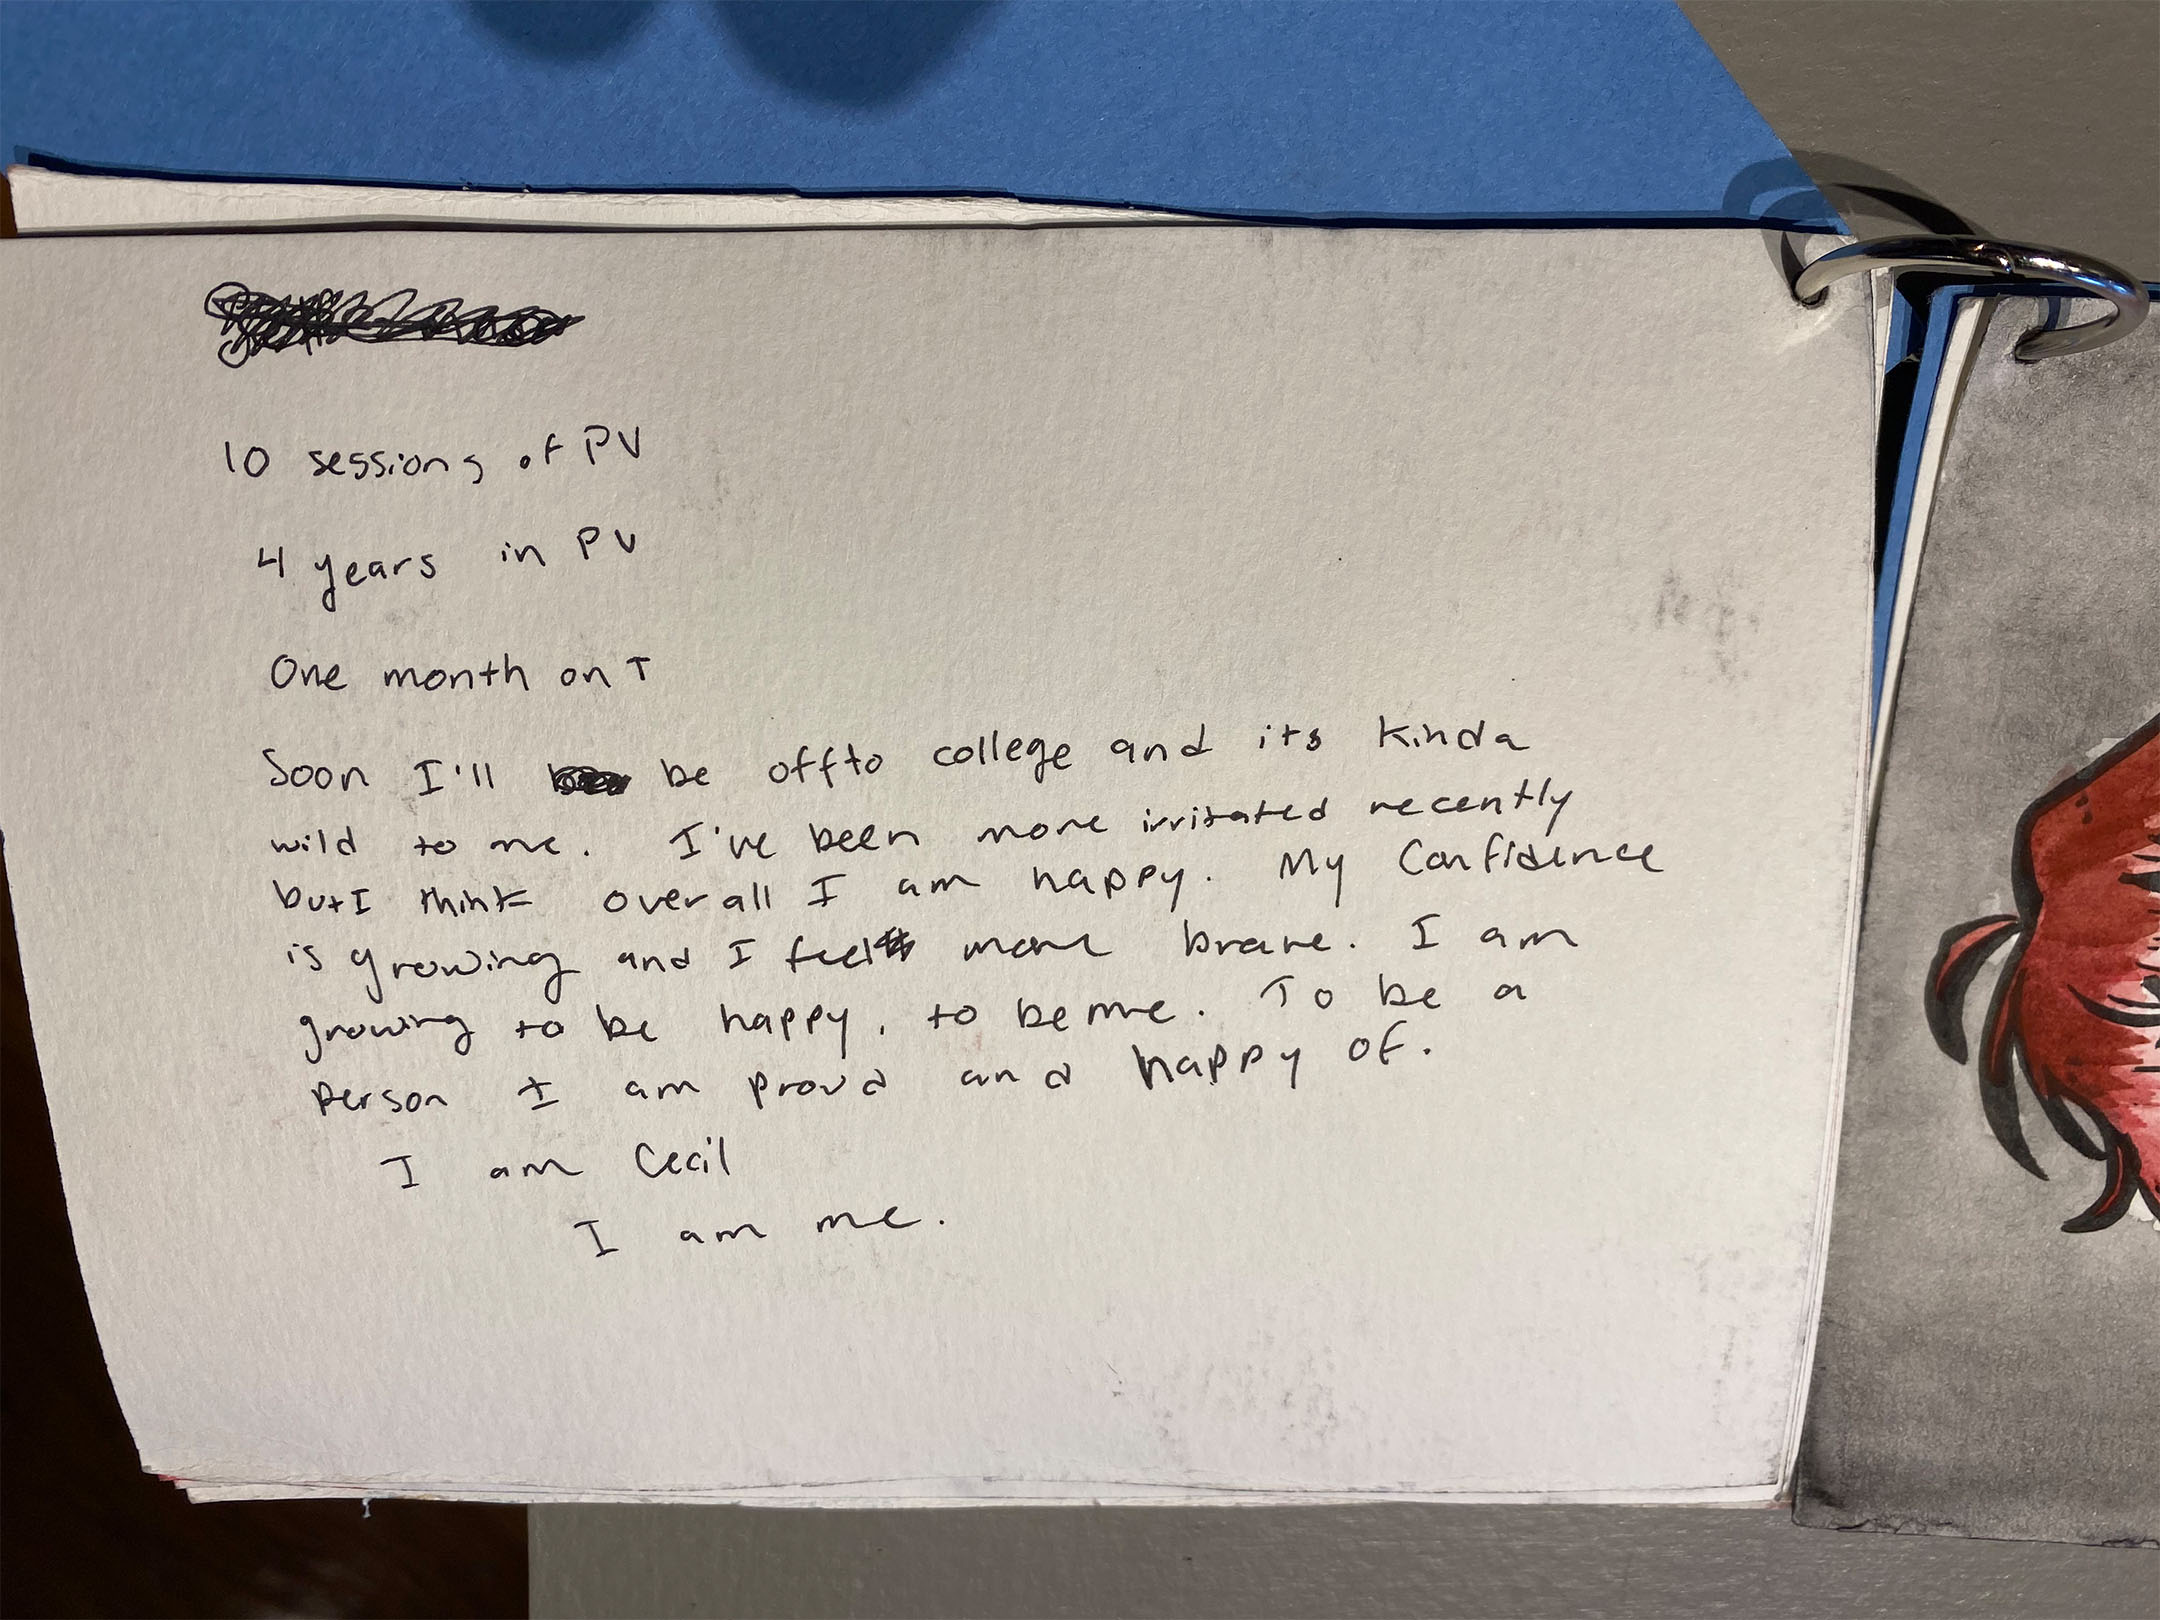 10 sessions of PV
4 years in PV
One month on T
Soon I'll be offto college and its kinda
wild to me. I've been more irritated recently
but I think overall I am happy. My Confidence
is growing and I feel more brave. I am
growing to be happy, to be me. To be a
person I am proud and happy of.
I am Cecil
I am me.